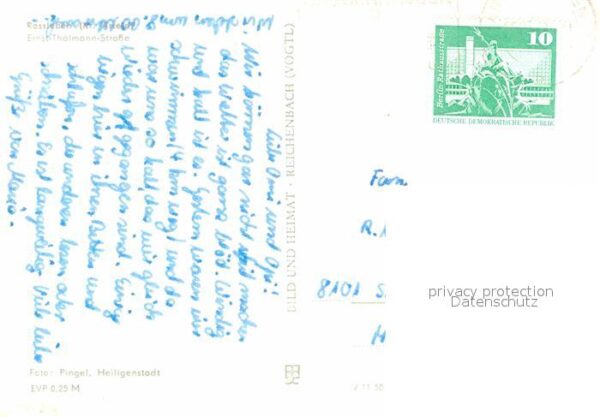 Ernst-Thälmann-Straße
Liebe Omi und Opi!
Wir können gar nicht viel machen
das Wetter ist ganz blöd. Windig
und kalt ist es. Gestern waren wir
schwimmen (4 km weg) und da
war uns so kalt, das wir gleich
wieder gegangen sind. Einige
liegen hier in ihren Betten und
schlafen, die anderen lesen oder
schreiben. Es ist langweilig. Viele liebe
Grüße von Mario.
Foto: Pingel, Heiligenstadt
EVP 0,25 M
BILD UND HEIMAT · REICHENBACH (VOGTL)
10
Berlin, Rathausstraße
DEUTSCHE DEMOKRATISCHE REPUBLIK
Fam
R.
8101
privacy protection
Datenschutz